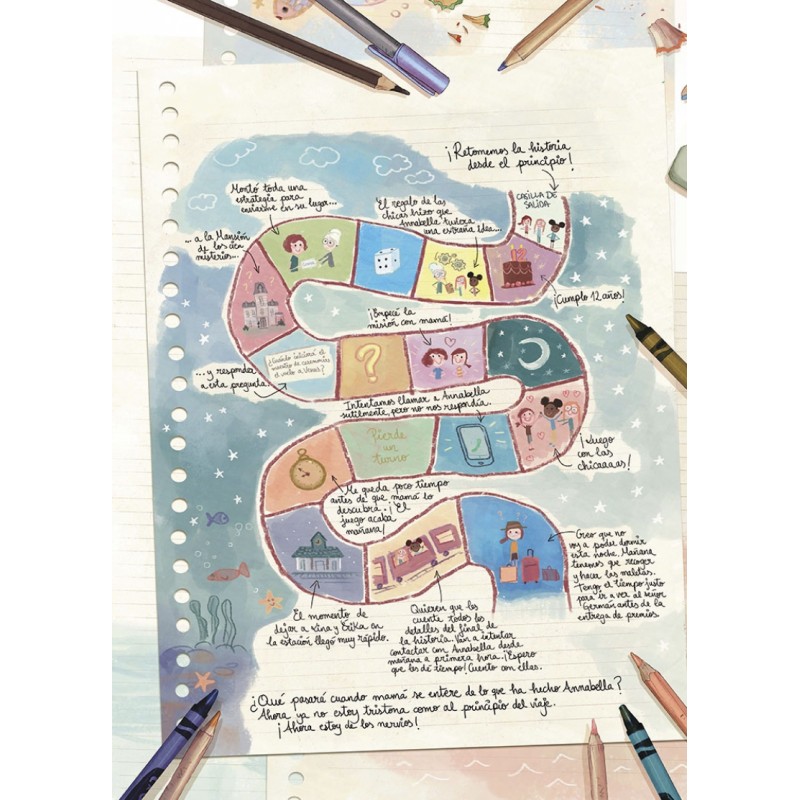 ¡Retomemos la historia
desde el principio!
CASILLA DE
SALIDA
¡Cumplo 12 años!
12
El regalo de las
chicas hizo que
Annabella tuviera
una extraña idea...
Montó toda una
estrategia para
enviarme en su lugar...
... a la Mansión
de los cien
misterios...
... y responder
a esta pregunta.
¿Cuándo iniciará el
maestro de ceremonias
el vuelo a Venus?
?
¡Empecé la
misión con mamá!
¡Juego
con las
chicaaaas!
Intentamos llamar a Annabella
sutilmente, pero no nos respondía.
Pierde
un
turno
Me queda poco tiempo
antes de que mamá lo
descubra. ¡El
juego acaba
mañana!
El momento de
dejar a Lina y Erika en
la estación llegó muy rápido.
Quieren que les
cuente todos los
detalles del final de
la historia. Van a intentar
contactar con Annabella desde
mañana a primera hora. ¡Espero
que les dé tiempo! Cuento con ellas.
Creo que no
voy a poder dormir
esta noche. Mañana
tenemos que recoger
y hacer las maletas.
Tengo el tiempo justo
para ir a ver al señor
Germán antes de la
entrega de premios.
¿Qué pasará cuando mamá se entere de lo que ha hecho Annabella?
Ahora ya no estoy tristona como al principio del viaje.
¡Ahora estoy de los nervios!